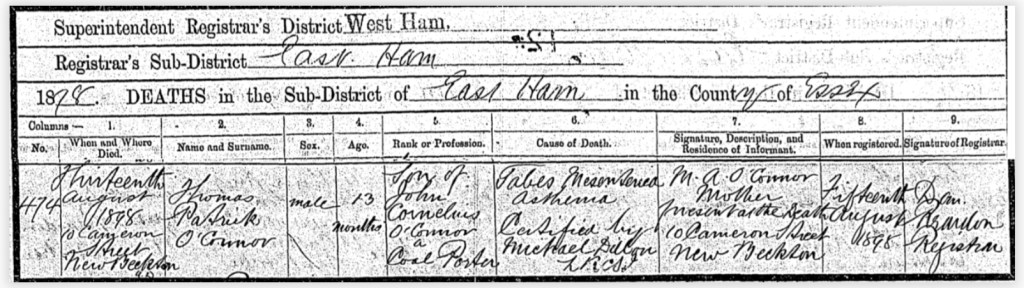 Superintendent Registrar's District West Ham.
Registrar's Sub-District East Ham
1898. DEATHS in the Sub-District of East Ham in the County of Essex
Columns:— 1. 2. 3. 4. 5. 6. 7. 8. 9.
No. When and Where Died. Name and Surname. Sex. Age. Rank or Profession. Cause of Death. Signature, Description, and Residence of Informant. When registered. Signature of Registrar.
474
Thirteenth
August
1898
10 Cameron
Street
New Beckton
Thomas
Patrick
O'Connor
male
13
months
Son of
John
Cornelius
O'Connor
a
Coal Porter
Tabes Mesenterica
asthenia
Certified by
Michael
L.R.C.S.I
M. A O'Connor
Mother
present at the Death
10 Cameron Street
New Beckton
Fifteenth
August
1898
Registrar